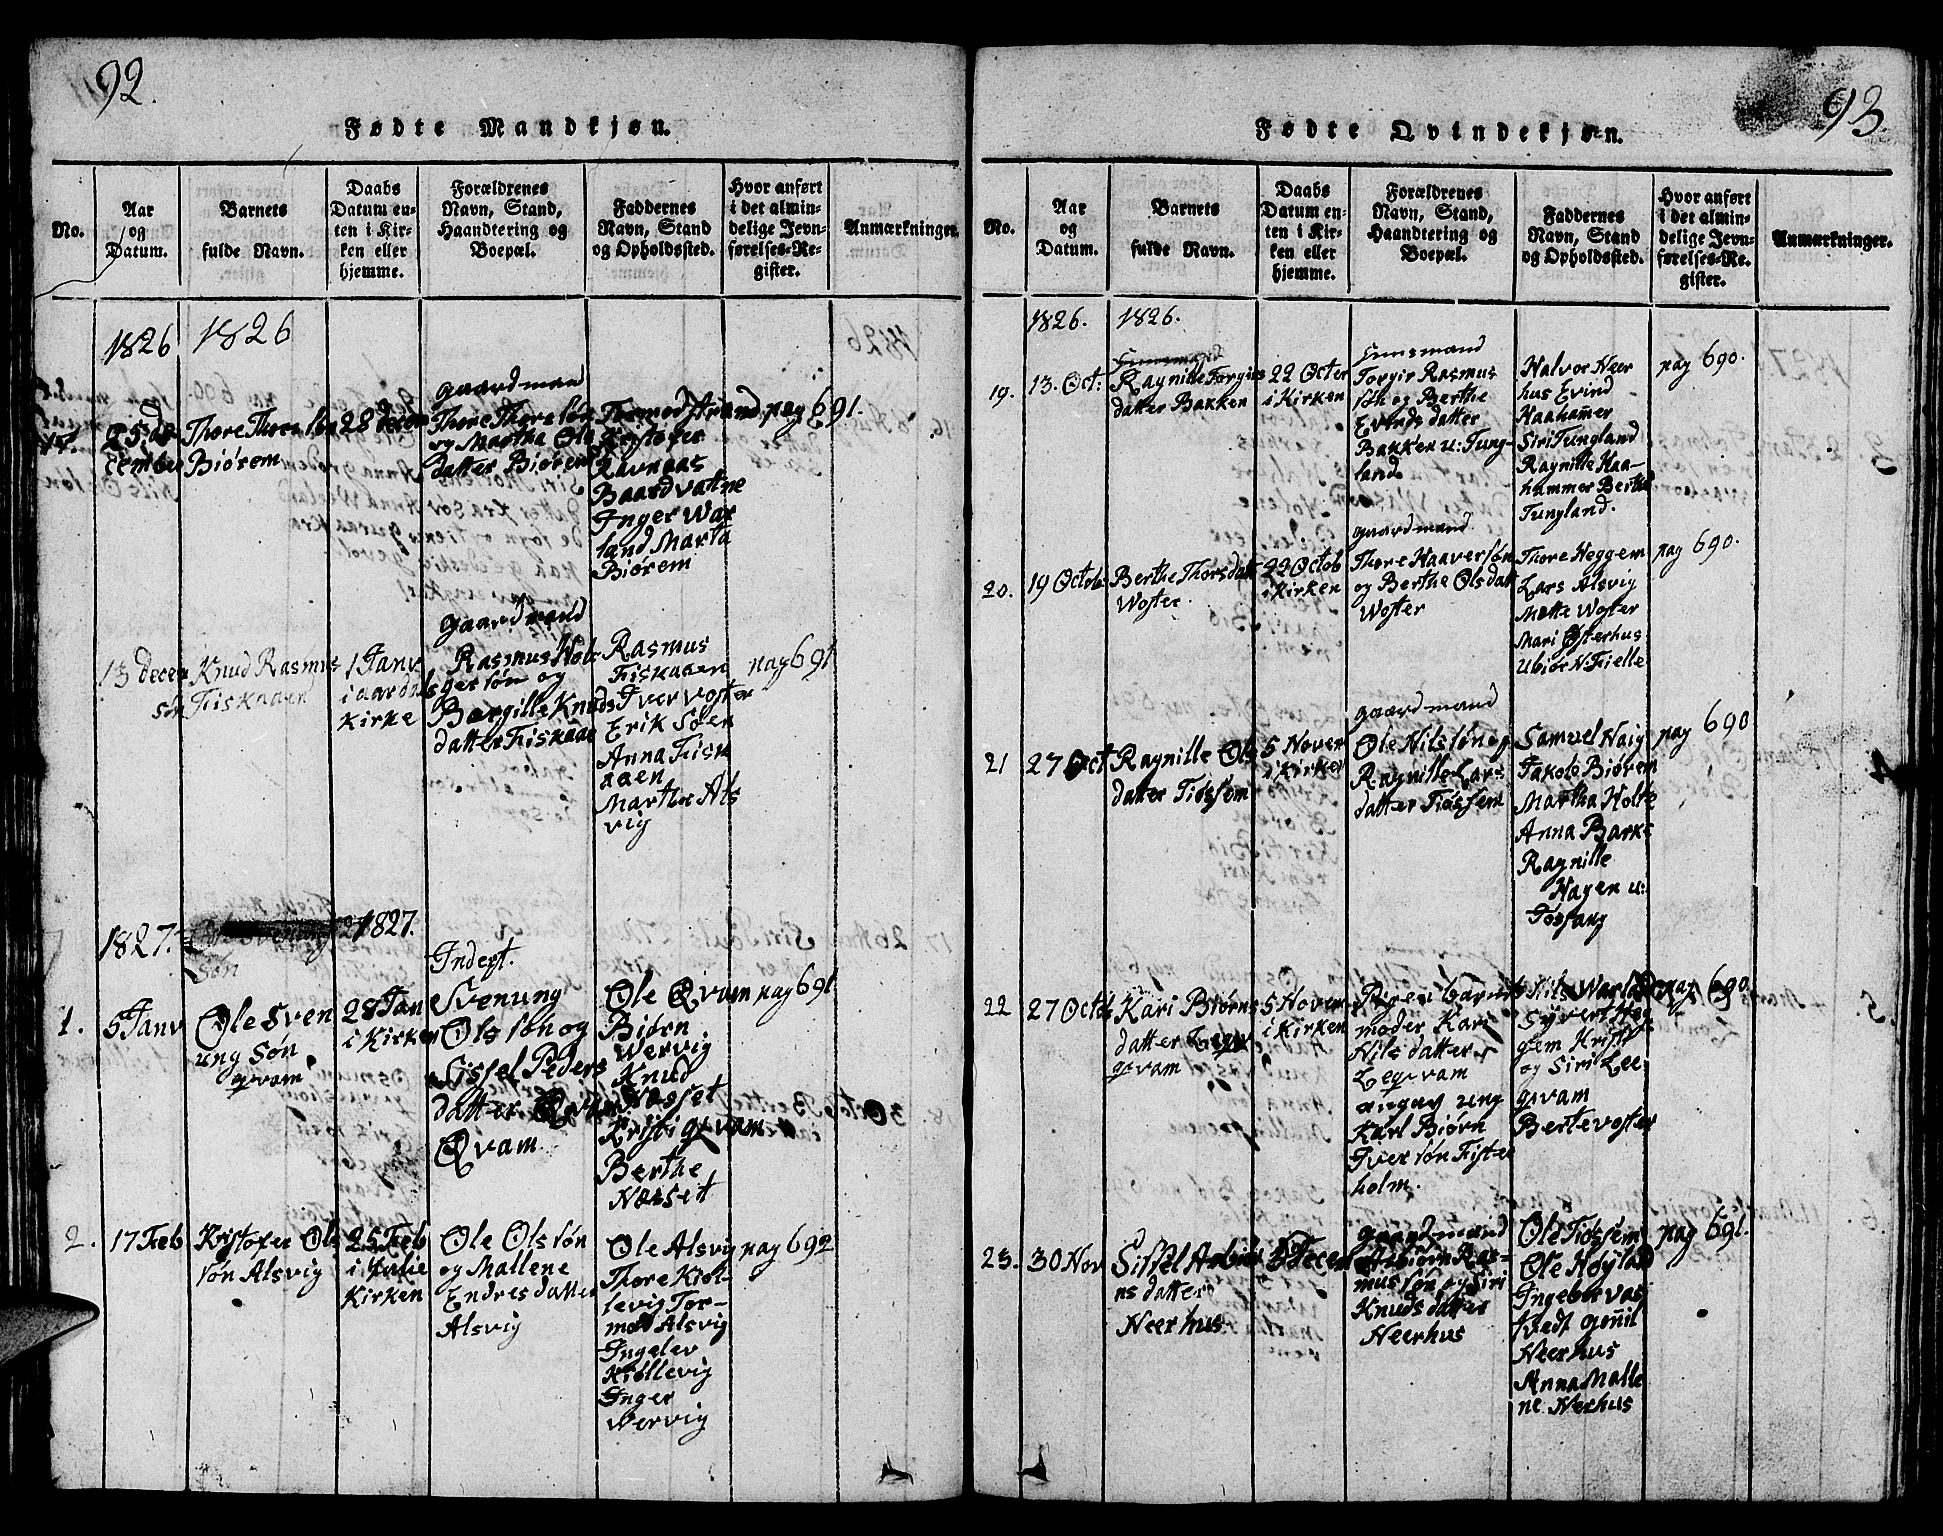 92.
Fødte Mandkjøn.
No.
Aar
og
Datum.
Barnets
fulde Navn.
Daabs
Datum en-
ten i Kir-
ken eller
hjemme.
Forældrenes
Navn, Stand,
Haandtering og
Boepæl.
Faddernes
Navn, Stand
og Opholdssted.
Hvor anført
i det almin-
delige Jevn-
førelses-Re-
gister.
Anmærkninger.
1826
1826
25 de
cember
Thore Thores søn
Biørem
28 decem
gaardmand
Thore Thore søn
og Martha Ols
datter Biørem
Thomod Strand
Kristofer
Ravnaas
Baard vatne
Inger War
land Marta
Biørem
pag 691.
13 decem
Knud Rasmus
søn Fiskaaen
1 Janv
i aardals
Kirke
gaardmand
Rasmus Hol-
ger søn og
Borgille Knuds
datter Fiskaae
Rasmus
Fiskaaen
Iver voster
Erik Søen
Anna Fisk
aaen
Martha Als
vig
pag 691
1827.
søn
1827.
1.
5 Janv
Ole Sven
ung søn
qvam
28 Jan
i Kirken
Inderst.
Svenung
Ols søn og
Sissel Peders
datter Qvam
Qvam
Ole Qvam
Biørn
Wervig
Knud
Næsset
Kristi qvam
Berthe
Næsset
pag 691
2.
17 Feb
Kristofer Ols
søn Alsvig
25 Feb
i
Kirken
Ole Ols søn
og Mallene
Endres datter
Alsvig
Ole Alsvig
Thore Kiøl-
levig Tor-
mod Alsvig
Ingelev
Kiøllevig
Inger
Wervig
pag 692
93.
Fødte Qvindekjøn.
No.
Aar
og
Datum.
Barnets
fulde Navn.
Daabs
Datum en-
ten i Kir-
ken eller
hjemme.
Forældrenes
Navn, Stand,
Haandtering og
Boepæl.
Faddernes
Navn, Stand
og Opholdssted.
Hvor anført
i det almin-
delige Jevn-
førelses-Re-
gister.
Anmærkninger.
1826.
1826.
19.
13. Oct:
Ragnille Torgirs
datter Bakken
22 Octer
i Kirken
Huusmand
Torgir Rasmus
søn og Berthe
Evinds datter
Bakken u: Tung-
land.
Halvor Neer
hus Evind
Haahamer
Siri Tungland
Ragnille Haa-
hammer Berthe
Tungland.
pag 690.
20.
19 Octob
Berthe Thorsdatt
Woster
22 Octob
i Kirken
gaardmand
Thore Haaver søn
og Berthe Ols datt
Woster
Thore Heggem
Lars Alsvig
Mette Woster
Mari Østerhus
Ubiør N: Fielle
pag 690.
21
27 Oct
Ragnille Ols
datter Tiøssem
5 Nover
i Kirken
gaardmand
Ole Nils søn og
Ragnille Lars
datter Tiøssem
Samuel Haig
Jakob Biørem
Martha Holte
Anna Barke
Ragnille
Hagen u:
Tøsang
pag 690
22
27 Octb
Kari Biørns
datter Leqv
qvam
5 Noven
i Kirken
Pigen barne
moder Kari
Nils datter
Leqvam
angav ung
Karl Biørn
Iver søn Fister
holm.
Nils Warland
Syvert Heg
gem Kristi
og Siri Lee
qvam
Berte voster
pag 690.
23.
30 Nov
Sissel Asbiør
ns datter
Neerhus
3 Decem
gaardmand
Asbiørn Ras-
mus søn og Siri
Knuds datter
Neerhus
Ole Tiøssem
Ole Høyland
Ingebor vas
tvedt gonil
Neerhus
Anna Malle
ne Nerhus
pag 691.